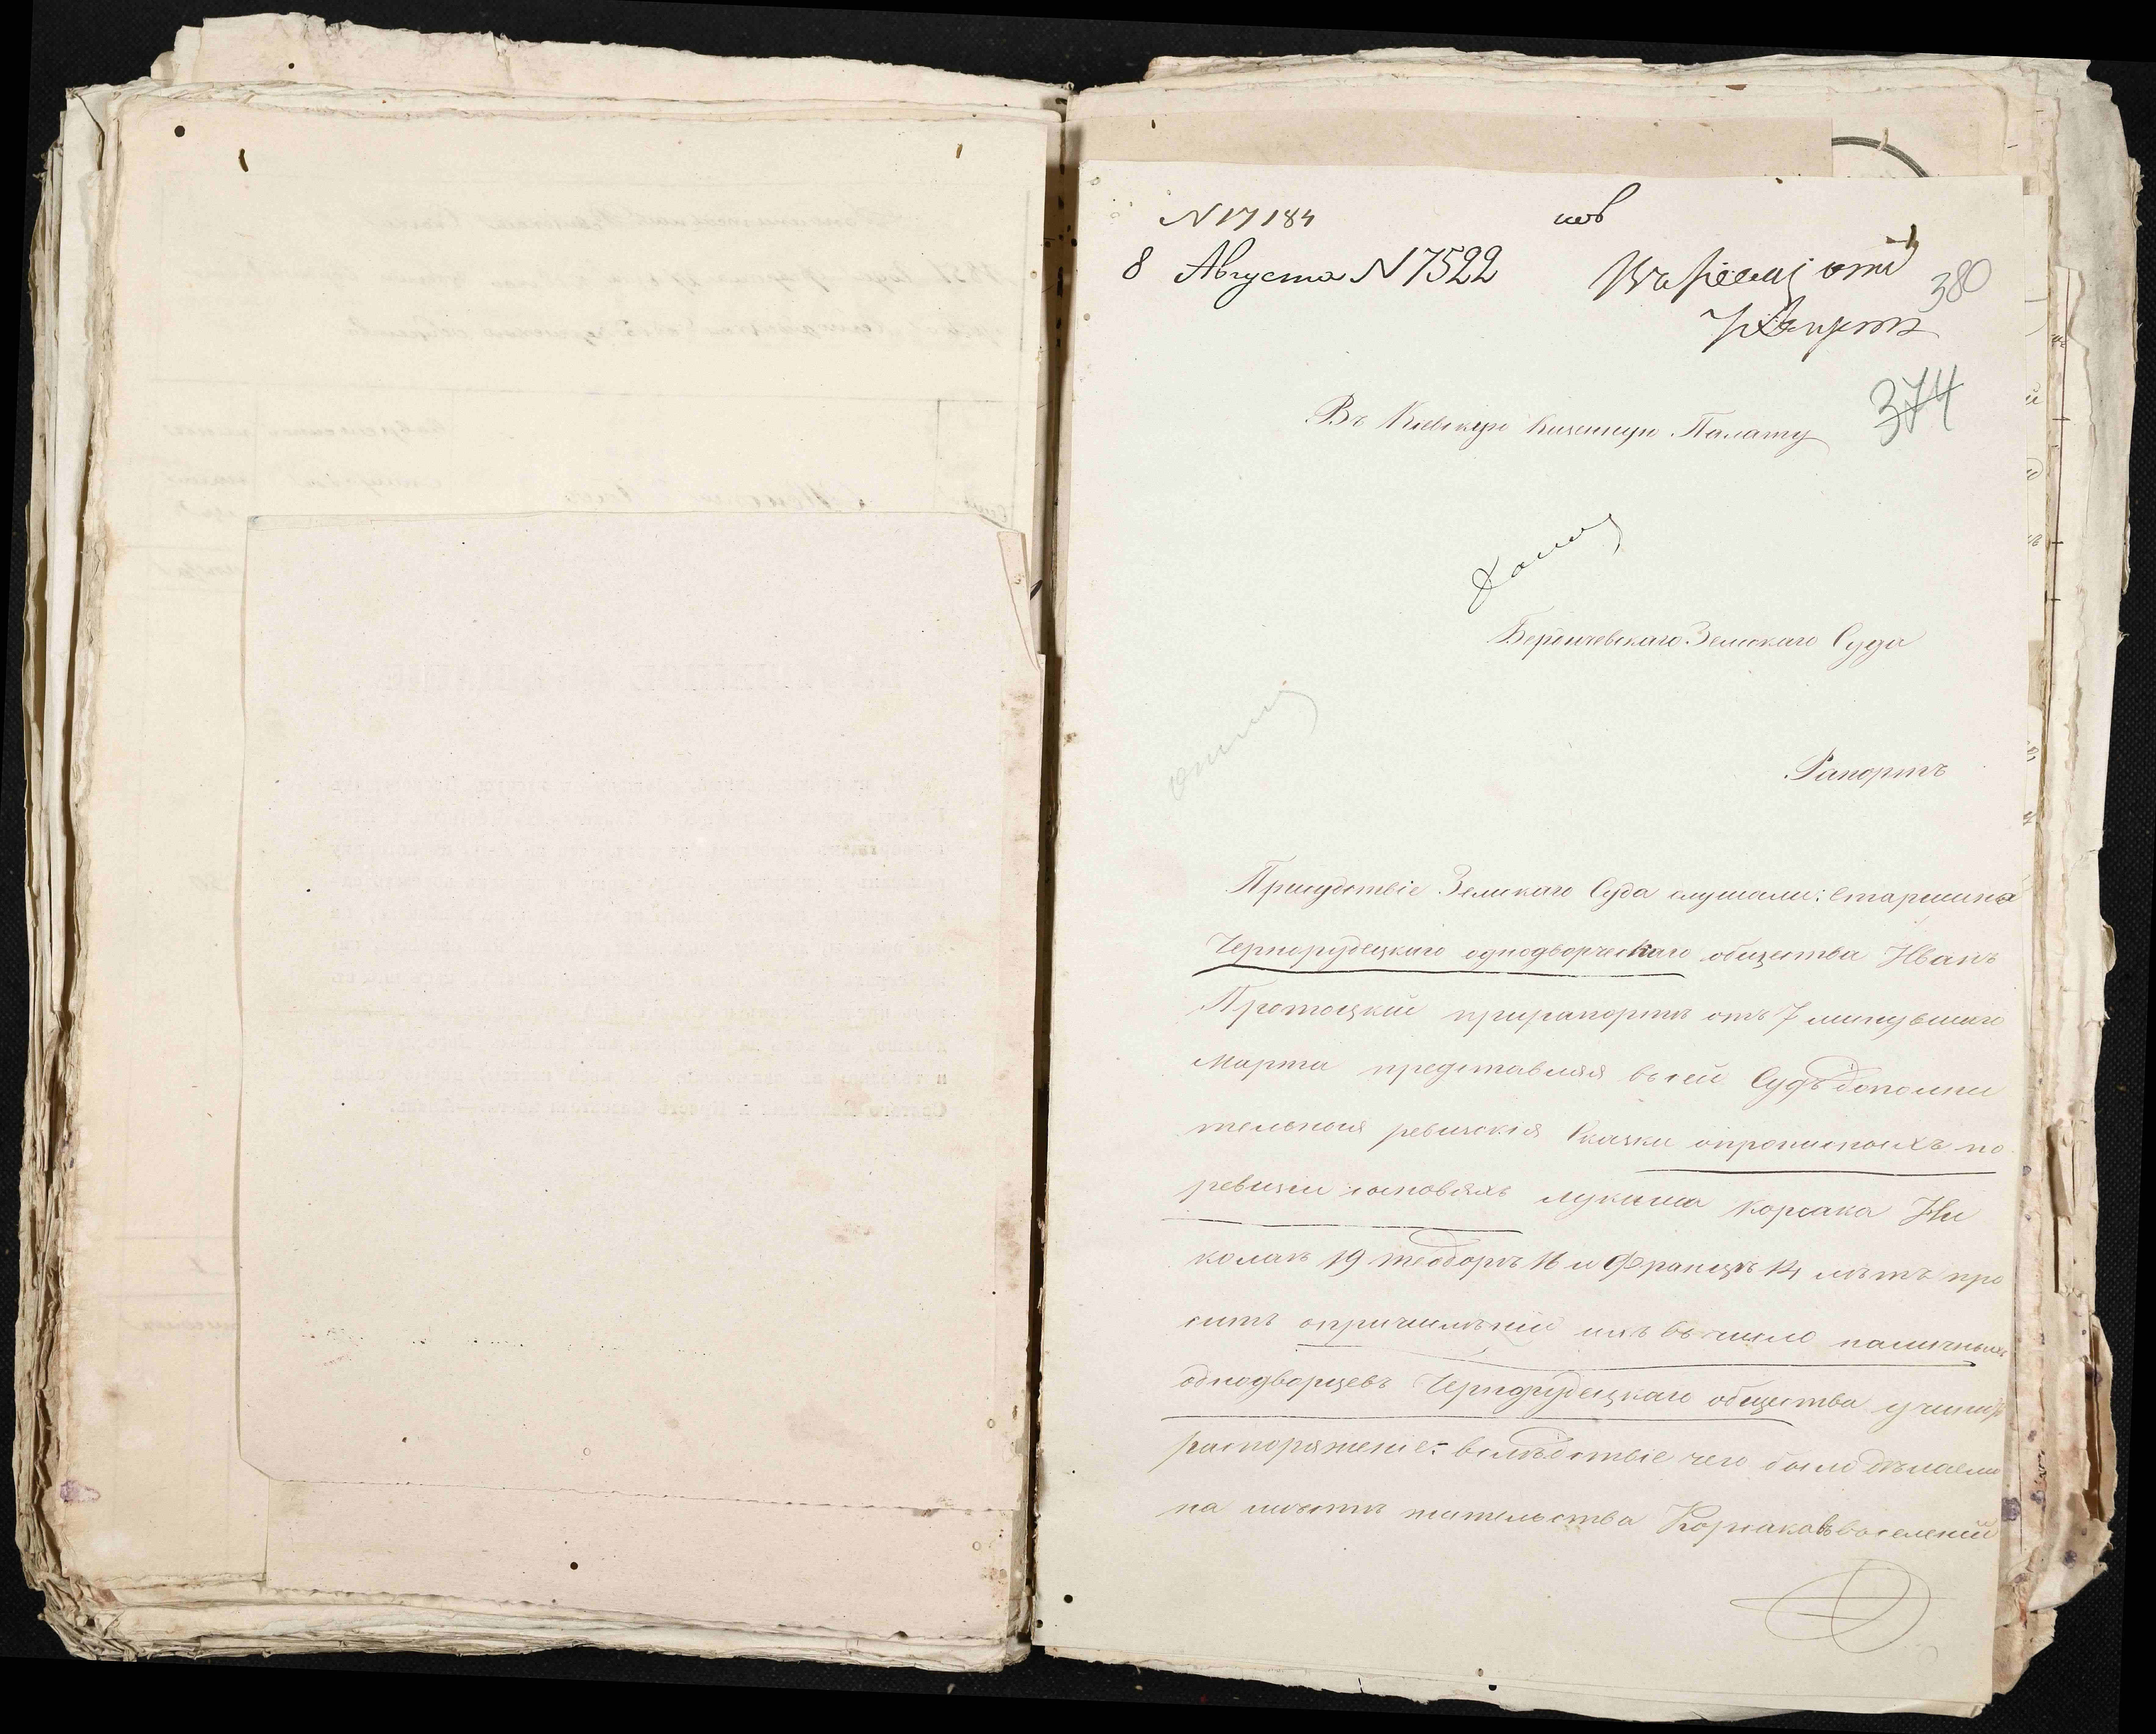 N 17184
8 Августа N 7522
380
374
Въ Киевскую Казенную Палату
Бердичевскаго Земскаго Суда
Рапортъ
Присудствіе Земскаго Суда слушали: Старшина
Чернорудецкаго однодворческаго общества Иванъ
Протоцкій прирапортѣ отъ 7 минувшаго
Марта представляя въсей Судъ дополни
тельныя ревизскія Сказки опрописныхъ по
ревизіи сыновьяхъ Лукаша Корсака Ни
колаѣ 19 Теодорѣ 16 и Францѣ 14 лѣтъ про
ситъ опричисленіи ихъ въ число наличныхъ
однодворцевъ Чернорудецкаго общества учинить
распоряженіе: вслѣдствіе чего было дѣлаемо
на мѣстѣ жительства Корсаковъ